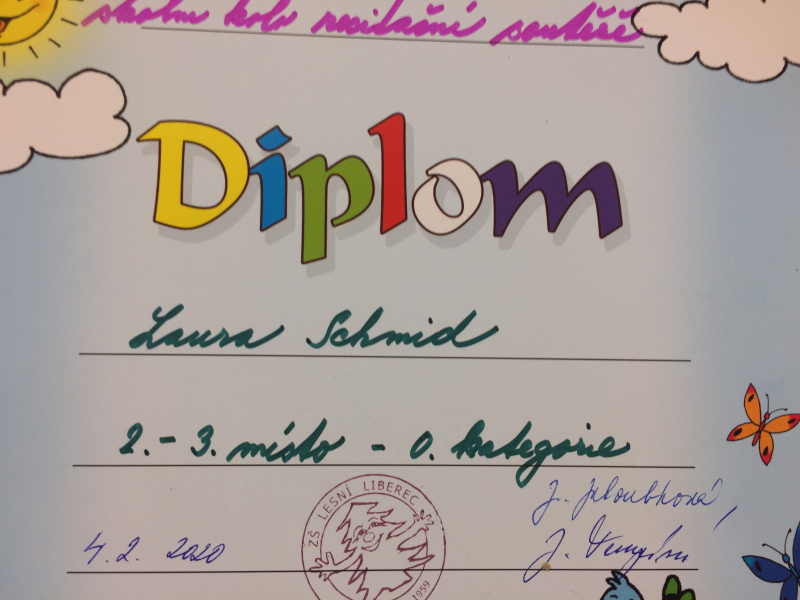 školní kolo recitační soutěže
Diplom
Laura Schmid
2. - 3. místo - 0. kategorie
ZŠ LESNÍ LIBEREC
1959
J.
4. 2. 2020
J.